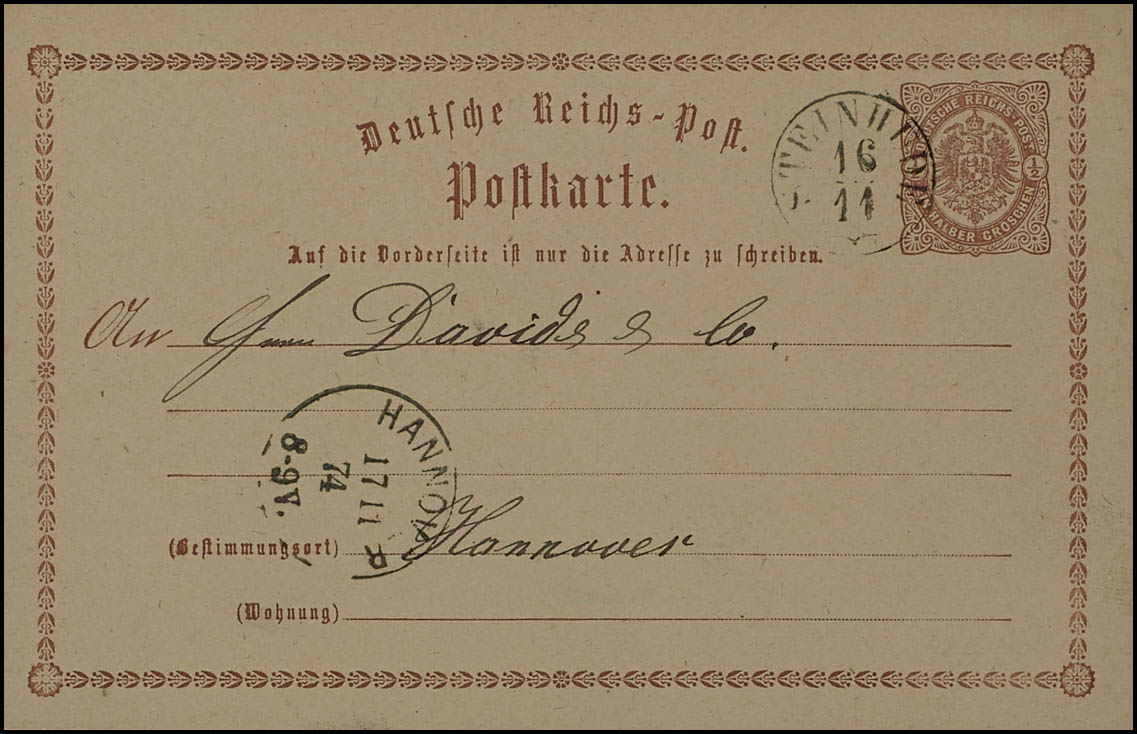 Deutsche Reichs-Post.
Postkarte.
Auf die Vorderseite ist nur die Adresse zu schreiben.
16
11
DEUTSCHE REICHS-POST
1/2
EIN HALBER GROSCHEN
An Herrn Davids & Co.
HANNOVER
17 11
74
8-9V.
(Bestimmungsort) Hannover
(Wohnung)